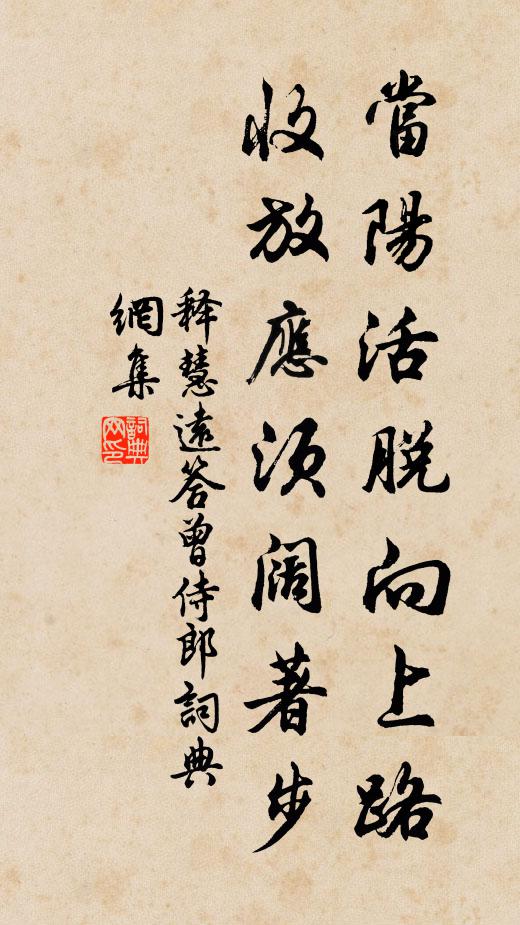 當陽活脫向上路
收放應須闊著步
释慧遠答曾侍郎詞典
網集
詞典网印